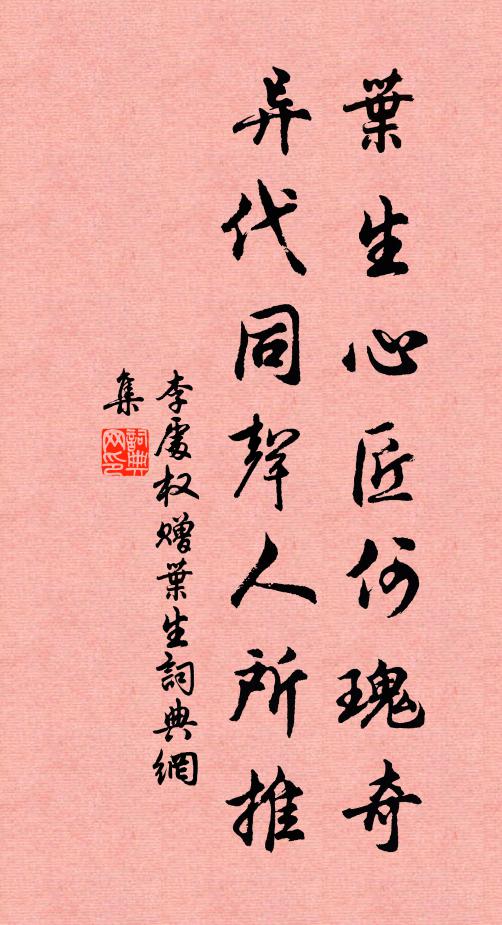 葉生心匠何瑰奇
异代同聲人所推
李處权赠葉生詞典網
集
詞典網印